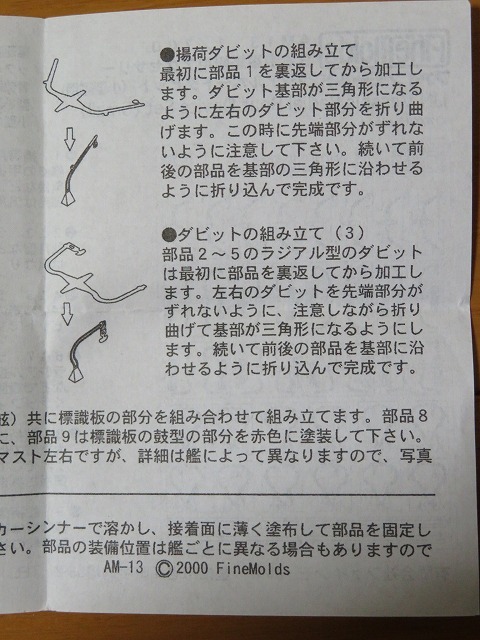 ●揚荷ダビットの組み立て
最初に部品1を裏返してから加工し
ます。ダビット基部が三角形になる
ように左右のダビット部分を折り曲
げます。この時に先端部分がずれな
いように注意して下さい。続いて前
後の部品を基部の三角形に沿わせる
ように折り込んで完成です。
●ダビットの組み立て(3)
部品2～5のラジアル型のダビット
は最初に部品を裏返してから加工し
ます。左右のダビットを先端部分が
ずれないように、注意しながら折り
曲げて基部が三角形になるようにし
ます。続いて前後の部品を基部に沿
わせるように折り込んで完成です。
舷)共に標識板の部分を組み合わせて組み立てます。部品8
に、部品9は標識板の鼓型の部分を赤色に塗装して下さい。
マスト左右ですが、詳細は艦によって異なりますので、写真
カーシンナーで溶かし、接着面に薄く塗布して部品を固定し
さい。部品の装備位置は艦ごとに異なる場合もありますので
AM-13 ©2000 FineMolds